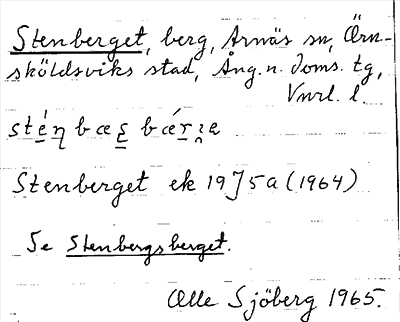 Stenberget, berg, Arnäs sn, Örn-
sköldsviks stad, Ång. n. doms. tg,
Vnrl. l.
Stenberget ek 19J5a (1964)
Se Stenbergsberget.
Olle Sjöberg 1965.